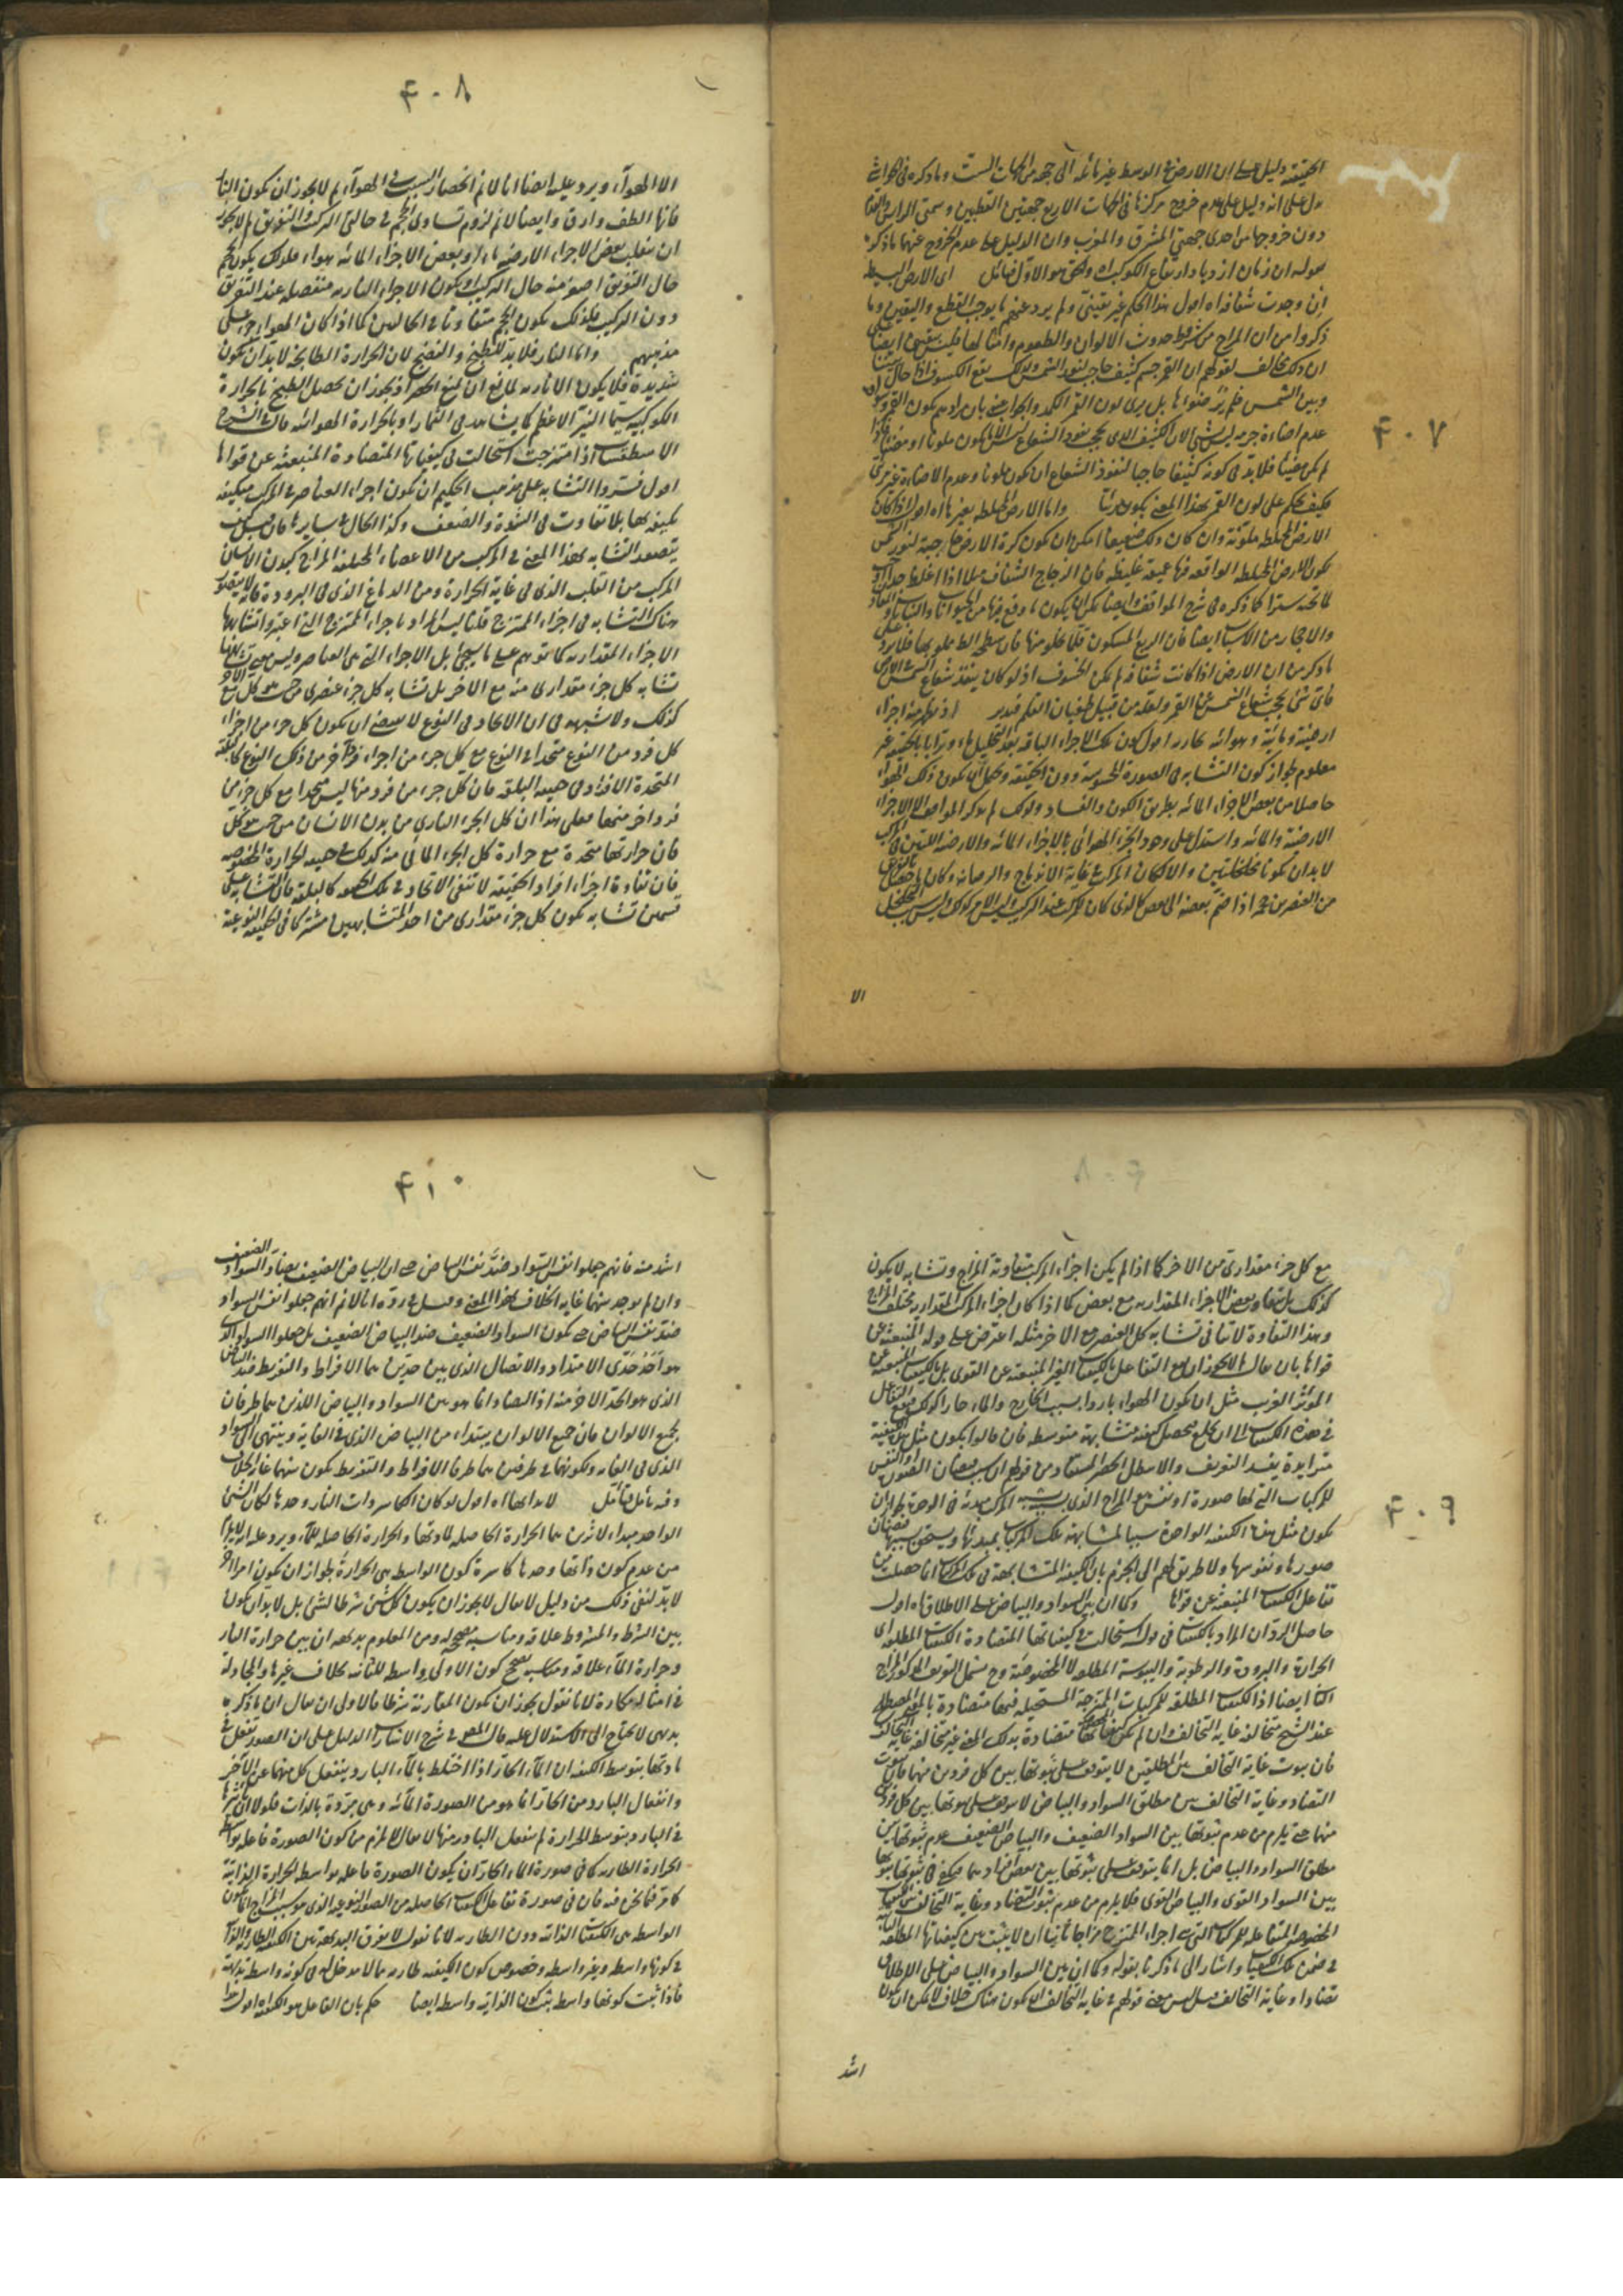 ٤٠٧
الحقيقة دليل على ان الارض في الوسط غير مائلة الى جهة من الجهات الست وما ذكره في
يدل على انه دليل على عدم خروج مركزها في الجهات الاربع جهتين القطبين وسمتي الراس والقدم
دون خروجها من احدى جهتي المشرق والمغرب وان الدليل على عدم الخروج عنهما ما ذكره
بقوله ان زمان ازدياد ارتفاع الكواكب اه والحق هو الاول فتأمل اى الارض البسيطة
ان وجدت شفافة اه اقول هذا الحكم غير يقينى ولم يرد عنهم ما يوجب القطع واليقين وما
ذكروا من ان المزاج من شرط حدوث الالوان والطعوم وامثالها ليس يقينى ايضا
ان ذلك مخالف لقولهم ان القمر جسم كثيف حاجب لنور الشمس ولذلك يقع الكسوف اذا حال بيننا
وبين الشمس
عدم اضاءة جرمه
لم يكن مضيئا فلا بد في كونه كثيفا حاجبا لنفوذ الشعاع ان يكون ملونا وعدم الاضاءة غير
فكيف يحكم على لون القمر بهذا المعنى بكونه مرئيا واما الارض المختلطة بغيرها اه اقول اذا كان
الارض المختلطة ملونة وان كان ذلك ضعيفا امكن ان يكون كرة الارض حاجبة لنور الشمس
والاحجار من الاسباب ايضا فان الربع المسكون قلما يخلو منها فان سطحه الظ مملو بها فلا يرد
ما ذكر من ان الارض اذا كانت شفافة لم يكن الخسوف اذ لو كان ينفذ شعاع الشمس في الارض
فاى شئ يحجب شعاع الشمس عن القمر ولعله من قبيل طغيان القلم فتدبر اذ يظهر منه اجزاء
ارضية ومائية وهوائية بخارية اقول كون تلك الاجزاء الباقية بعد التحليل ماء وترابا بالحقيقة غير
معلوم لجواز كون التشابه في الصورة المحسوسة دون الحقيقة ويحتمل ان يكون ذلك الهواء
حاصلا من بعض الاجزاء المائية بطريق الكون والفساد ولذلك لم يذكر المواقف الا الاجزاء
الارضية والمائية واستدل على وجود الجزء الهوائى بان الاجزاء المائية والارضية اللتين في المركب
لا بد ان يكونا متخلخلتين والا لكان المركب في غاية الاندماج والرصانة
من العنصرين مح اذا ضم بعضه الى بعض كالذى كان للمركب عند التركيب وليس الامر كذلك وليس سبب التخلخل
الا
٤٠٨
الا الهواء ويرد عليه ايضا انا لا نم انحصار السبب في الهواء لم لا يجوز ان يكون النار
فانها الطف وارق وايضا لا نم لزوم تساوى الحجم في حالتى التركيب والتفريق لم لا يجوز
ان ينقلب بعض الاجزاء الارضية ماء او بعض الاجزاء المائية هواء فلذلك يكون الحجم
حال التفريق اصغر منه حال التركيب او يكون الاجزاء النارية منفصلة عند التفريق
دون التركيب فلذلك يكون الحجم متفاوتا في الحالين كما اذا كان الهواء جزء على
مذهبهم واما النار فلا بد للطبخ والنضج لان الحرارة الطابخة لا بد ان تكون
شديدة فلا يكون الا نارية لمانع ان يمنع الحصر اذ يجوز ان يحصل الطبخ بالحرارة
الكوكبية سيما النير الاعظم كما يشاهد في الثمار او بالحرارة الهوائية قال الشرح
الاسطقسات اذا امتزجت استحالت في كيفياتها المتضادة المنبعثة عن قواها
اقول فسروا التشابه على مذهب الحكيم ان يكون اجزاء العناصر في المركب متكيفة
بكيفية بها بلا تفاوت في الشدة والضعف وكذا الحال في سايرها فان قيل كيف
يتصور التشابه بهذا المعنى في المركب من الاعضاء المختلفة المزاج كبدن الانسان
المركب من القلب الذى في غاية الحرارة ومن الدماغ الذى في البرودة فانه لا يتصور
هناك التشابه في اجزاء الممتزج قلنا ليس المراد باجزاء الممتزج التى اعتبر تشابهها
الاجزاء المقدارية كما توهم على ما سيجئ بل الاجزاء التى هى العناصر وليس معنى تشابهها
تشابه كل جزء مقدارى منه مع الاخر بل تشابه كل جزء عنصرى من حيث هو كل مع الاخر
كذلك ولا شبهة في ان الاتحاد في النوع لا يقتضى ان يكون كل جزء من اجزاء
كل فرد من النوع متحدا في النوع مع كل جزء من اجزاء فرد آخر من ذلك النوع كالبلقة
المتحدة الافراد في حقيقة البلقة فان كل جزء من فرد منها ليس متحدا مع كل جزء من
فرد آخر منها فعلى هذا ان كل الجزء النارى من بدن الانسان من حيث هو كل
فان حرارتها متحدة مع حرارة كل الجزء المائى منه كذلك في حقيقة الحرارة المخصوصة
فان تفاوت اجزاء افراد الحقيقة لا تنفى الاتحاد في تلك الحقيقة كالبلقة فان التشابه على
قسمين تشابه يكون كل جزء مقدارى من احد المتشابهين مشتركا في الحقيقة النوعية
٤٠٩
مع كل جزء مقدارى من الاخر كما اذا لم يكن اجزاء المركب متفاوتة المزاج وتشابه لا يكون
كذلك بل يتفاوت بعض الاجزاء المقدارية مع بعض كما اذا كان اجزاء المركب المقدارية مختلفة المزاج
وهذا التفاوت لا ينافى تشابه كل العنصر مع الاخر مثله اعترض على قوله المنبعثة عن
قواها بان يقال لم لا يجوز ان يقع التفاعل بالكيفيات الغير المنبعثة عن القوى بل بالكيفيات المنبعثة عن
المؤثر الغريب مثل ان يكون الهواء باردا بسبب الخارج والماء حارا كذلك فيقع التفاعل
في هذه الكيفيات الى ان يحصل كيفية متشابهة متوسطة فان قالوا يكون مثل هذه الكيفية
متزايدة يفسد التعريف والا بطل الحصر المستفاد من قولهم
للمركبات التى لها صورة او نفس هو المزاج الذى
يكون مثل هذه الكيفية الواحدة سببا لمشابهة تلك المركبات بمبدئها ويستحق بسببها فيضان
صورها ونفوسها ولا طريق لهم الى الجزم بان الكيفية المتشابهة في تلك المركبات انما حصلت من
تفاعل الكيفيات المنبعثة عن قواها وكما ان بين السواد والبياض على الاطلاق اه اقول
حاصل الرد ان المراد بالكيفيات في قوله استحالت في كيفياتها المتضادة الكيفيات المطلقة اى
الحرارة والبرودة والرطوبة واليبوسة المطلقة لا المخصوصة وح يشمل التعريف المذكور المزاج
الثانى ايضا اذ الكيفيات المطلقة للمركبات الممتزجة المستحيلة فيها متضادة بالمعنى المصطلح
عند الشيخ متخالفة غاية التخالف وان لم تكن كيفياتها متضادة بذلك المعنى غير متخالفة غاية التخالف
فان ثبوت غاية التخالف بين المطلقين لا يتوقف على ثبوتها بين كل فردين منهما فان ثبوت
التضاد وغاية التخالف بين مطلق السواد والبياض لا يتوقف على ثبوتها بين كل فردين
منهما حتى يلزم من عدم ثبوتها بين السواد الضعيف والبياض الضعيف عدم ثبوتها بين
مطلق السواد والبياض بل انما يتوقف على ثبوتها بين بعض افرادهما فيكفى في ثبوتها ثبوتها
بين السواد القوى والبياض القوى فلا يلزم من عدم ثبوت التضاد وغاية التخالف بين الكيفيات
المخصوصة المتفاعلة للمركبات التى هى اجزاء الممتزج مزاجا ثانيا ان لا يثبت بين كيفياتها المطلقة
في ضمن تلك الكيفيات واشار الى ما ذكرنا بقوله وكما ان بين السواد والبياض على الاطلاق
تضادا وغاية التخالف قيل ليس معنى قولهم غاية التخالف ان يكون هناك خلاف لا يمكن ان يكون
اشد
٤١٠
اشد منه فانهم جعلوا نفس السواد ضد نفس البياض حتى ان البياض الضعيف يضاد السواد الضعيف
وان لم يوجد بينهما غاية الخلاف بهذا المعنى وقيل في رده انا لا نم انهم جعلوا نفس السواد
ضد نفس البياض حتى يكون السواد الضعيف ضد البياض الضعيف بل جعلوا السواد الذى
هو احد حدى الامتداد والاتصال الذى بين حدين هما الافراط والتفريط ضد البياض
الذى هو الحد الاخر منه اذ التضاد انما هو بين السواد والبياض اللذين هما طرفان
لجميع الالوان فان جميع الالوان يبتداء من البياض الذى في الغاية وينتهى الى السواد
الذى في الغاية ولكونهما في طرفين هما طرفا الافراط والتفريط يكون بينهما غاية الخلاف
وفيه تأمل فتأمل لا بد لها اه اقول لو كان الكاسر ذات النار وحدها لكان الشئ
الواحد مبداء لاثرين هما الحرارة الحاصلة لمادتها والحرارة الحاصلة للماء ويرد عليه لا يلزم
من عدم كون ذاتها وحدها كاسرة كون الواسطة هى الحرارة لجواز ان يكون امرا آخر
لا بد لنفى ذلك من دليل لا يقال لا يجوز ان يكون كل شئ شرطا لشئ بل لا بد ان يكون
بين الشرط والمشروط علاقة ومناسبة مصححة له ومن المعلوم بديهة ان بين حرارة النار
وحرارة الماء علاقة ومناسبة تصحح كون الاولى واسطة للثانية بخلاف غيرها والمجادلة
في امثاله مكابرة لانا نقول يجوز ان يكون المقارنة شرطا فالاولى ان يقال ان ما ذكره
بديهى لا يحتاج الى الاستدلال عليه قال المص في شرح الاشارات الدليل على ان الصور تفعل في
مادتها بتوسط الكيفية ان الماء الحار اذا اختلط بالماء البارد ينفعل كل منهما عن الآخر
وانفعال البارد من الحار انما هو من الصورة المائية وهى مبردة بالذات فلولا ان تأثيرها
في البارد بتوسط الحرارة لم ينفعل البارد منها لا يقال لا يلزم من كون الصورة فاعلة بواسطة
الحرارة الطارية كما في صورة الماء الحار ان يكون الصورة فاعلة بواسطة الحرارة الذاتية
كما فيما نحن فيه فان في صورة تفاعل الكيفيات الحاصلة من الصور النوعية الذى هو سبب المزاج انما يكون
الواسطة هى الكيفيات الذاتية دون الطارية لانا نقول لا يفرق البديهة بين الكيفية الطارية والذاتية
في كونها واسطة وغير واسطة وخصوص كون الكيفية طارية مما لا مدخل له في كونه واسطة بداهة
فاذا ثبت كونها واسطة ثبت كون الذاتية واسطة ايضا حكم بان الفاعل هو الكيفية اه اقول